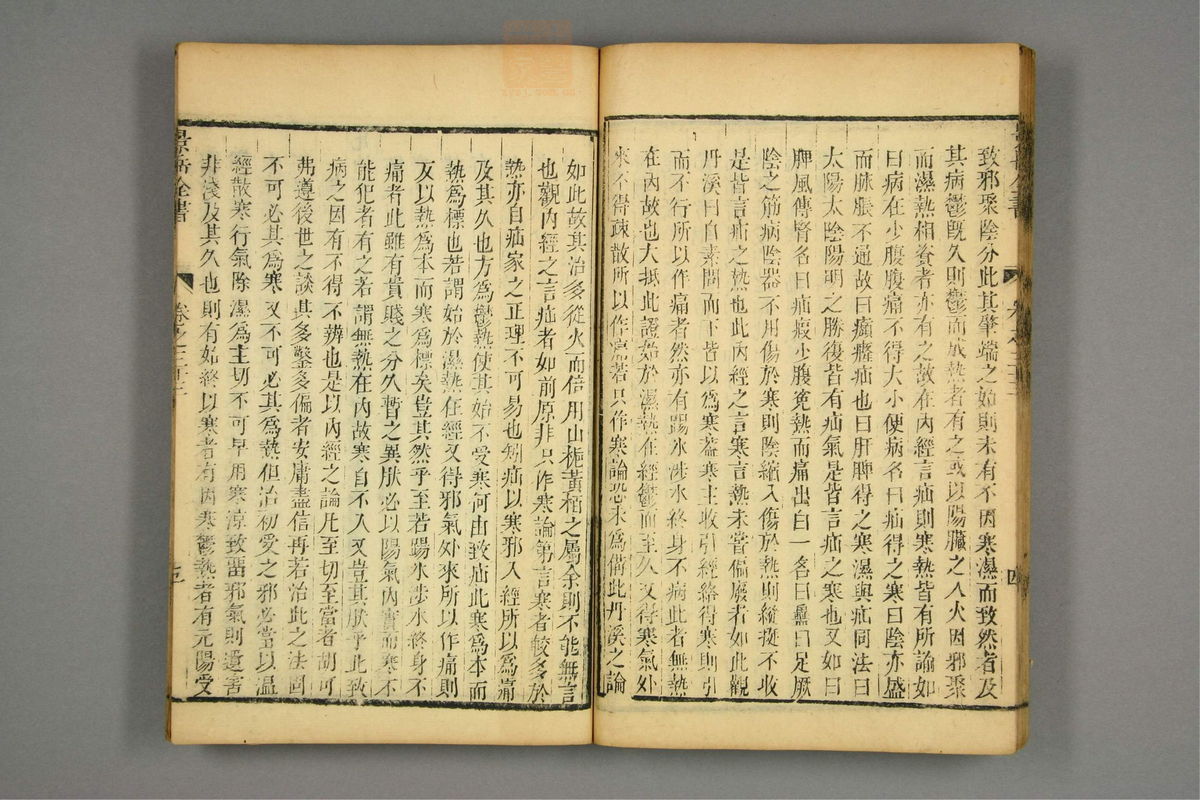 致邪聚陰分此其肇端之始則未有不因寒濕而致然者及
其病鬱既久則鬱而成熱者有之或以陽臟之人火因邪聚
而濕熱相資者亦有之故在內經言疝則寒熱皆有所論如
曰病在少腹腹痛不得大小便病名曰疝得之寒曰陰亦盛
而脉脹不通故曰㿗癃疝也曰肝脾得之寒濕與疝同法曰
太陽太陰陽明之勝復皆有疝氣是皆言疝之寒也又如曰
脾風傳腎名曰疝瘕少腹寃熱而痛出白一名曰蠱曰足厥
陰之筋病陰器不用傷於寒則陰縮入傷於熱則縱挺不收
是皆言疝之熱也此內經之言寒言熱未嘗偏廢者如此觀
丹溪曰自素問而下皆以爲寒葢寒主收引經絡得寒則引
而不行所以作痛者然亦有踢氷涉水終身不病此者無熱
在內故也大抵此證始於濕熱在經鬱而至久又得寒氣外
來不得疎散所以作痛若只作寒論恐未爲備此丹溪之論
四
如此故其治多從火而倍用山梔黃栢之屬余則不能無言
也觀內經之言疝者如前原非只作寒論第言寒者較多於
熱亦自疝家之正理不可易也矧疝以寒邪入經所以爲痛
及其久也方爲鬱熱使其始不受寒何由致疝此寒爲本而
熱爲標也若謂始於濕熱在經又得邪氣外來所以作痛則
反以熱爲本而寒爲標矣豈其然乎至若踢氷涉水終身不
痛者此雖有貴賤之分久暫之異肰必以陽氣內實而寒不
能犯者有之若謂無熱在內故寒自不入又豈其肰乎此致
病之因有不得不辨也是以內經之論凡至切至當者胡可
弗遵後世之談其多鑿多偏者安庸盡信再若治此之法固
不可必其爲寒又不可必其爲熱但治初受之邪必當以溫
經散寒行氣除濕爲主切不可早用寒涼致留邪氣則遺害
非淺及其久也則有始終以寒者有因寒鬱熱者有元陽受
景岳全書
卷之三十三